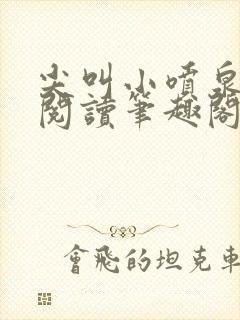 尖叫小噴泉
閱讀筆趣閣
會飛的坦克車